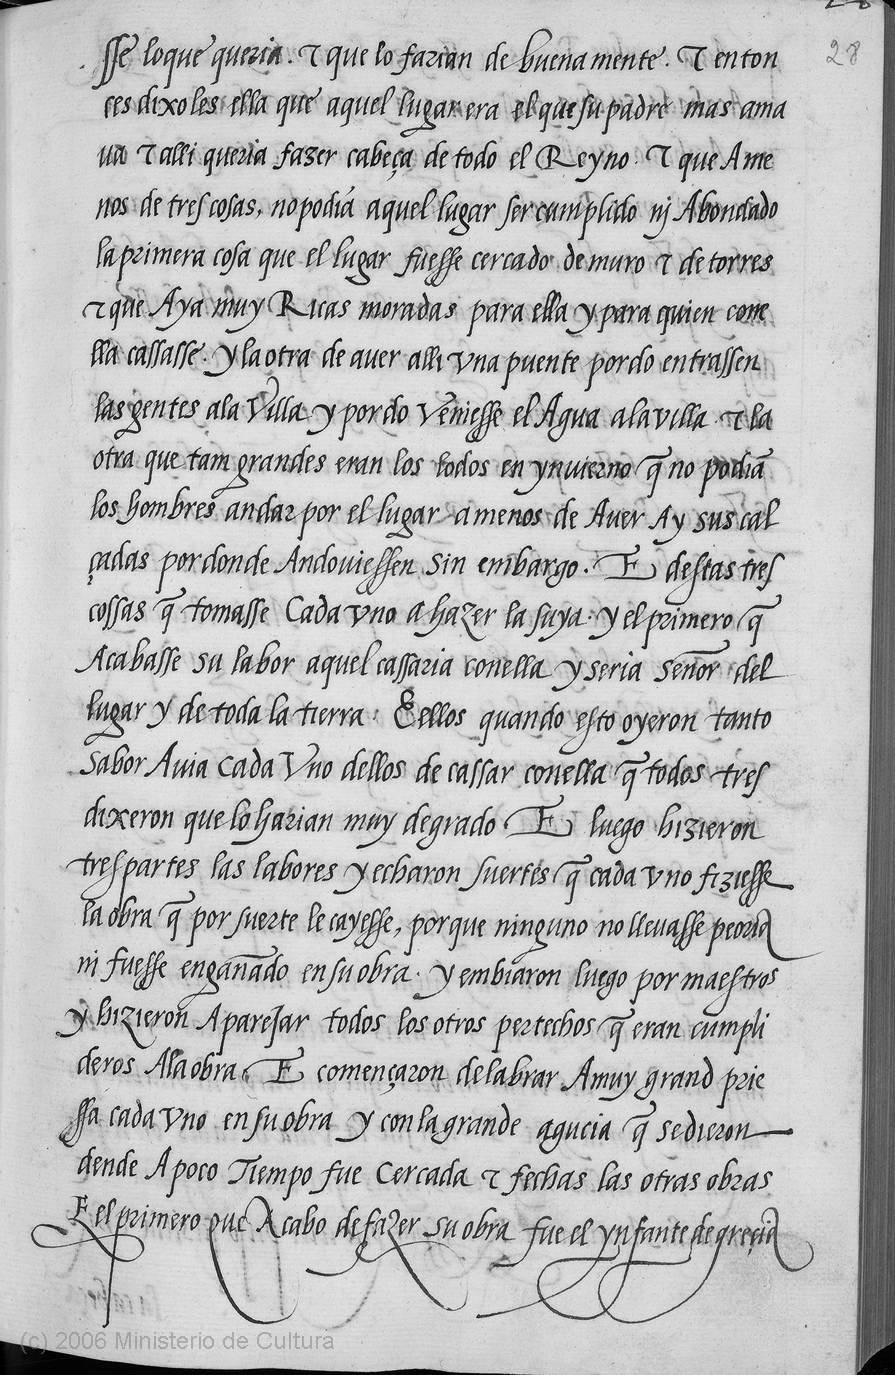 28
sse loque queria. τ que lo farian de buenamente. τ enton
ces dixo les ella que aquel lugar era el que su padre mas ama
ua τ alli queria fazer cabeça de todo el Reyno. τ que Ame
nos de tres cosas, no podiā aquel lugar ser cumplido nj Abondado
la primera cosa que el lugar fuesse cercado de muro τ de torres
τ que Aya muy Ricas moradas para ella y para quien cone
lla cassasse. y la otra de auer alli vna puente por do entrassen
las gentes ala Villa y por do Veniesse el Agua ala villa. τ la
otra que tam grandes eran los lodos en ynuierno q̄ no podiā
los hombres andar por el lugar amenos de Auer Ay sus cal
çadas por donde Andouiessen Sin embargo. E destas tres
cossas q̄ tomasse Cada vno a hazer la suya. y el primero q̄
Acabasse su labor aquel cassaria conella y seria Señor del
lugar y de toda la tierra. E ellos quando esto oyeron tanto
Sabor Auia Cada Vno dellos de cassar conella q̄ todos tres
dixeron que lo harian muy degrado. E luego hizieron
tres partes las labores y echaron suertes q̄ cada vno fiziesse
la obra q̄ por suerte le cayesse, porque ninguno no lleuasse peoria
ni fuesse engañado en su obra. y embiaron luego por maestros
y hizieron Aparejar todos los otros pertechos q̄ eran cumpli
deros Ala obra. E començaron de labrar Amuy grand prie
ssa cada vno en su obra y con la grande agucia q̄ se dieron
dende Apoco Tiempo fue Cercada τ fechas las otras obras
E el primero que Acabo de fazer su obra fue el ynfante de greçia
(c) 2006 Ministerio de Cultura